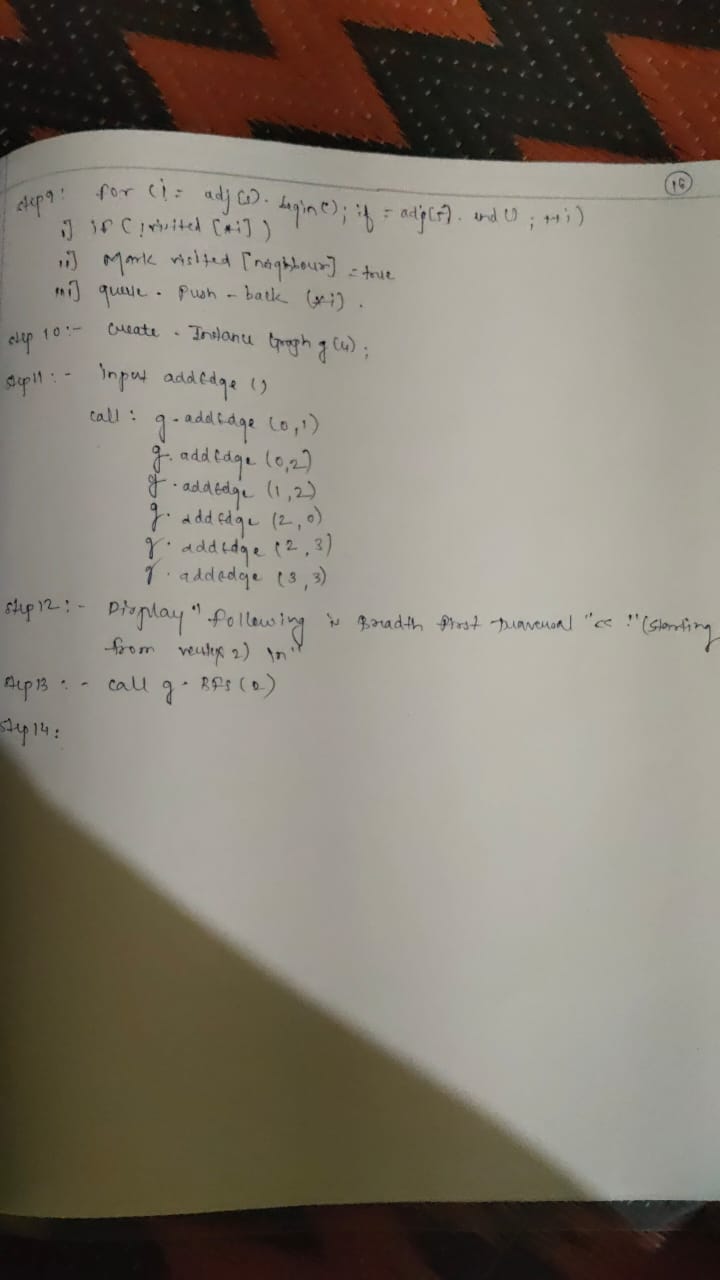 16
step9: for (i = adj[s].begin(); i != adj[s].end(); ++i)
i] if (!visited [*i])
ii] Mark visited [neighbour] = true
iii] queue. push-back (*i).
step 10:- Create - Instance Graph g(4);
Step11:- input addEdge ()
call: g.addEdge (0,1)
g.addEdge (0,2)
g.addEdge (1,2)
g.addEdge (2,0)
g.addEdge (2,3)
g.addedge (3,3)
step12:- Display" following is Breadth First Traversal "<< "(starting
from vertex 2) \n"
step13:- call g.BFS(2)
step14: